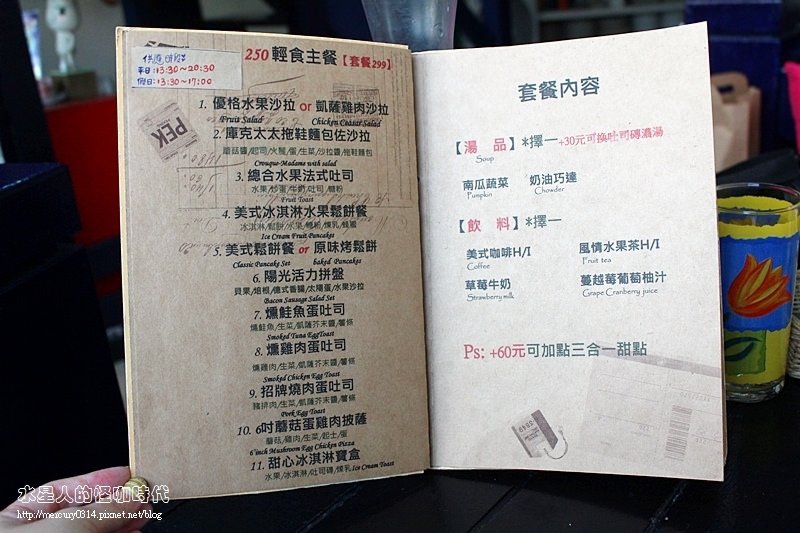 供應時段
平日:13:30~20:30
假日:13:30~17:00
250 輕食主餐【套餐299】
PEK
1. 優格水果沙拉 or 凱薩雞肉沙拉
Fruit Salad Chicken Ceasar Salad
2. 庫克太太拖鞋麵包佐沙拉
蘑菇醬/起司/火腿/蛋/生菜/沙拉醬/拖鞋麵包
Crouque-Madame with salad
3. 總合水果法式吐司
水果/炒蛋/牛奶/吐司/糖粉
Fruit Toast
4. 美式冰淇淋水果鬆餅餐
冰淇淋/鬆餅/水果/糖粉/煉乳/蜂蜜
Ice Cream Fruit Pancakes
5. 美式鬆餅餐 or 原味烤鬆餅
Classic Pancake Set baked Pancakes
6. 陽光活力拼盤
貝果/培根/德式香腸/太陽蛋/水果沙拉
Bacon Sausage Salad Set
7. 燻鮭魚蛋吐司
燻鮭魚/生菜/凱薩芥末醬/薯條
Smoked Tuna EggToast
8. 燻雞肉蛋吐司
燻雞肉/生菜/凱薩芥末醬/薯條
Smoked Chicken Egg Toast
9. 招牌燒肉蛋吐司
豬排肉/生菜/凱薩芥末醬/薯條
Pork Egg Toast
10. 6吋蘑菇蛋雞肉披薩
蘑菇/雞肉/生菜/起士/蛋
6'inch Mushroom Egg Chicken Pizza
11. 甜心冰淇淋寶盒
水果/冰淇淋/吐司磚/煉乳 Ice Cream Toast
套餐內容
【湯 品】*擇一 +30元可換吐司磚濃湯
Soup
南瓜蔬菜 奶油巧達
Pumpkin Chowder
【飲 料】*擇一
美式咖啡H/I 風情水果茶H/I
Coffee Fruit tea
草莓牛奶 蔓越莓葡萄柚汁
Strawberry milk Grape Cranberry juice
Ps: +60元可加點三合一甜點
水星人的怪咖時代
http://mercury0314.pixnet.net/blog